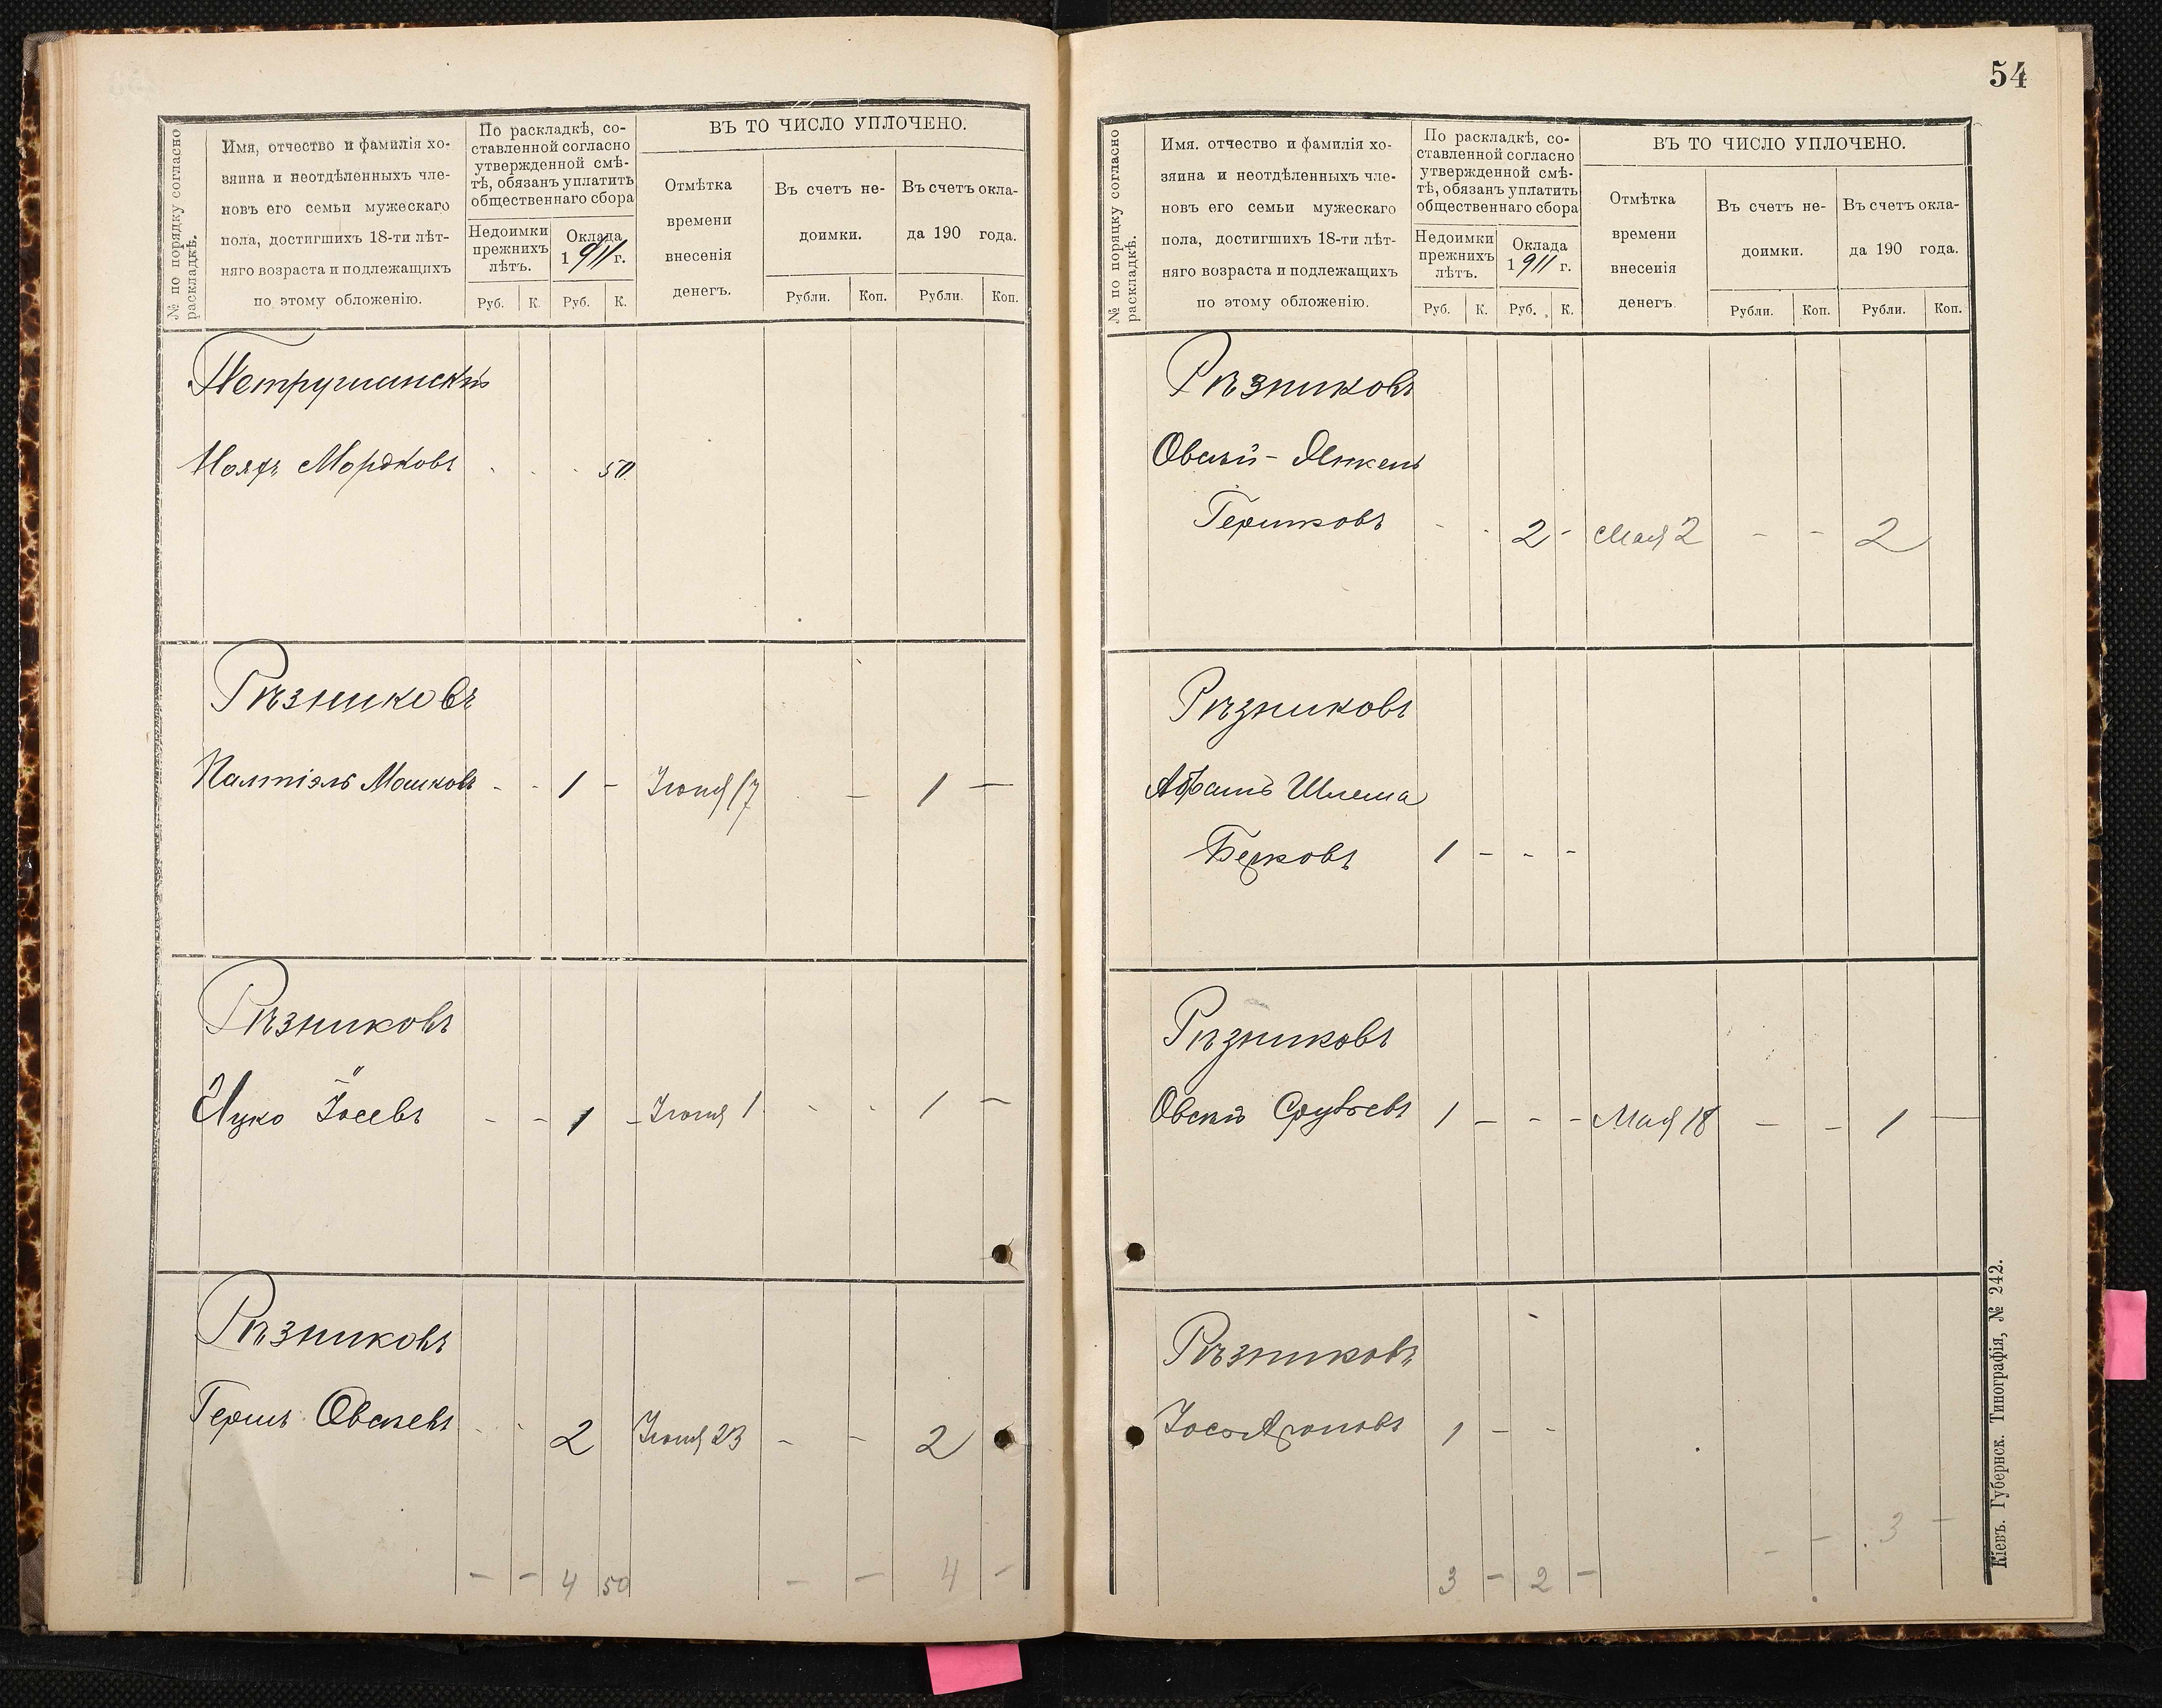 № по порядку согласно
раскладкѣ.
Имя, отчество и фамилія хо-
зяина и неотдѣленныхъ чле-
новъ его семьи мужескаго
пола, достигшихъ 18-ти лѣт-
няго возраста и подлежащихъ
по этому обложенію.
По раскладкѣ, со-
ставленной согласно
утвержденной смѣ-
тѣ, обязанъ уплатить
общественнаго сбора
Недоимки
прежнихъ
лѣтъ.
Оклада
1911 г.
Руб. К. Руб. К.
ВЪ ТО ЧИСЛО УПЛОЧЕНО.
Отмѣтка
времени
внесенія
денегъ.
Въ счетъ не-
доимки.
Въ счетъ окла-
да 190 года.
Рубли. Коп. Рубли. Коп.
Петрушанскій
Мордковъ - - - 50
Рѣзниковъ
Палтіэль Мошковъ - - 1 - Іюня 17 - 1 -
Рѣзниковъ
Ицко Іосевъ - - 1 - Іюня 1 - - 1 -
Рѣзниковъ
Гершъ Овсѣевъ - - 2 Іюня 23 - - 2
- - 4 50 - - 4 -
54
№ по порядку согласно
раскладкѣ.
Имя. отчество и фамилія хо-
зяина и неотдѣленныхъ чле-
новъ его семьи мужескаго
пола, достигшихъ 18-ти лѣт-
няго возраста и подлежащихъ
по этому обложенію.
По раскладкѣ, со-
ставленной согласно
утвержденной смѣ-
тѣ, обязанъ уплатить
общественнаго сбора
Недоимки
прежнихъ
лѣтъ.
Оклада
1911 г.
Руб. К. Руб. К.
ВЪ ТО ЧИСЛО УПЛОЧЕНО.
Отмѣтка
времени
внесенія
денегъ.
Въ счетъ не-
доимки.
Въ счетъ окла-
да 190 года.
Рубли. Коп. Рубли. Коп.
Рѣзниковъ
Овсѣй-Янкель
Гершковъ - - 2 - Мая 2 - - 2
Рѣзниковъ
Абрамъ Шлема
Берковъ 1 - - -
Рѣзниковъ
Овсѣй Срулевъ 1 - - - Мая 18 - - 1 -
Рѣзниковъ
Іосъ Ароновъ 1 - -
3 - 2 - - - 3 -
Кіевъ. Губернск. Типографія, № 242.